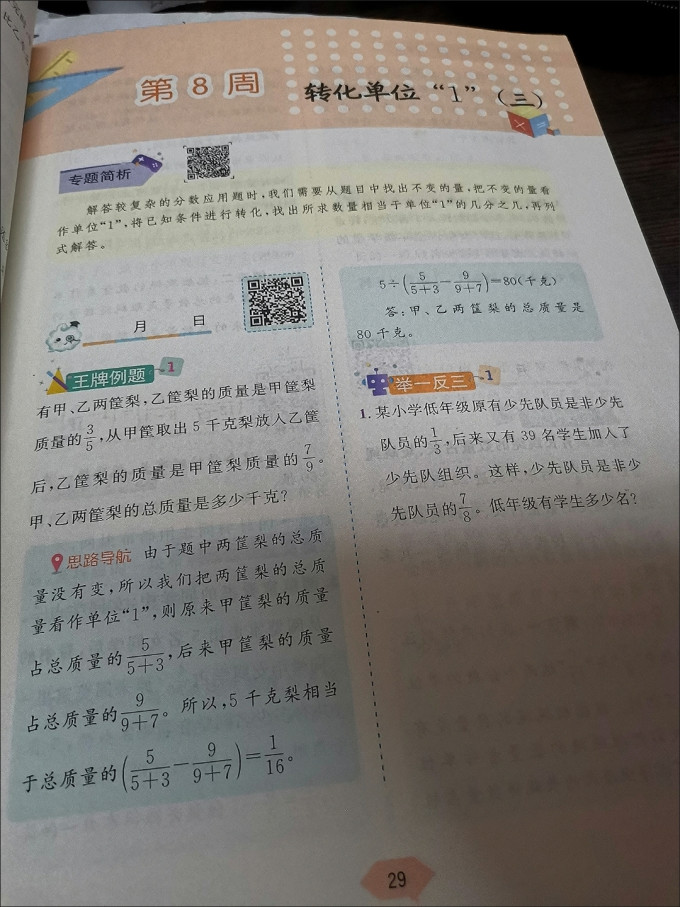 第8周 转化单位“1”(三)
专题简析
解答较复杂的分数应用题时,我们需要从题目中找出不变的量,把不变的量看
作单位“1”,将已知条件进行转化,找出所求数量相当于单位“1”的几分之几,再列
式解答。
月 日
王牌例题 1
有甲、乙两筐梨,乙筐梨的质量是甲筐梨
质量的3/5,从甲筐取出5千克梨放入乙筐
后,乙筐梨的质量是甲筐梨质量的7/9。
甲、乙两筐梨的总质量是多少千克?
思路导航 由于题中两筐梨的总质
量没有变,所以我们把两筐梨的总质
量看作单位“1”,则原来甲筐梨的质量
占总质量的5/(5+3),后来甲筐梨的质量
占总质量的9/(9+7)。所以,5千克梨相当
于总质量的(5/(5+3)-9/(9+7))=1/16。
5÷(5/(5+3)-9/(9+7))=80(千克)
答:甲、乙两筐梨的总质量是
80千克。
举一反三 1
1. 某小学低年级原有少先队员是非少先
队员的1/3,后来又有39名学生加入了
少先队组织。这样,少先队员是非少
先队员的7/8。低年级有学生多少名?
29